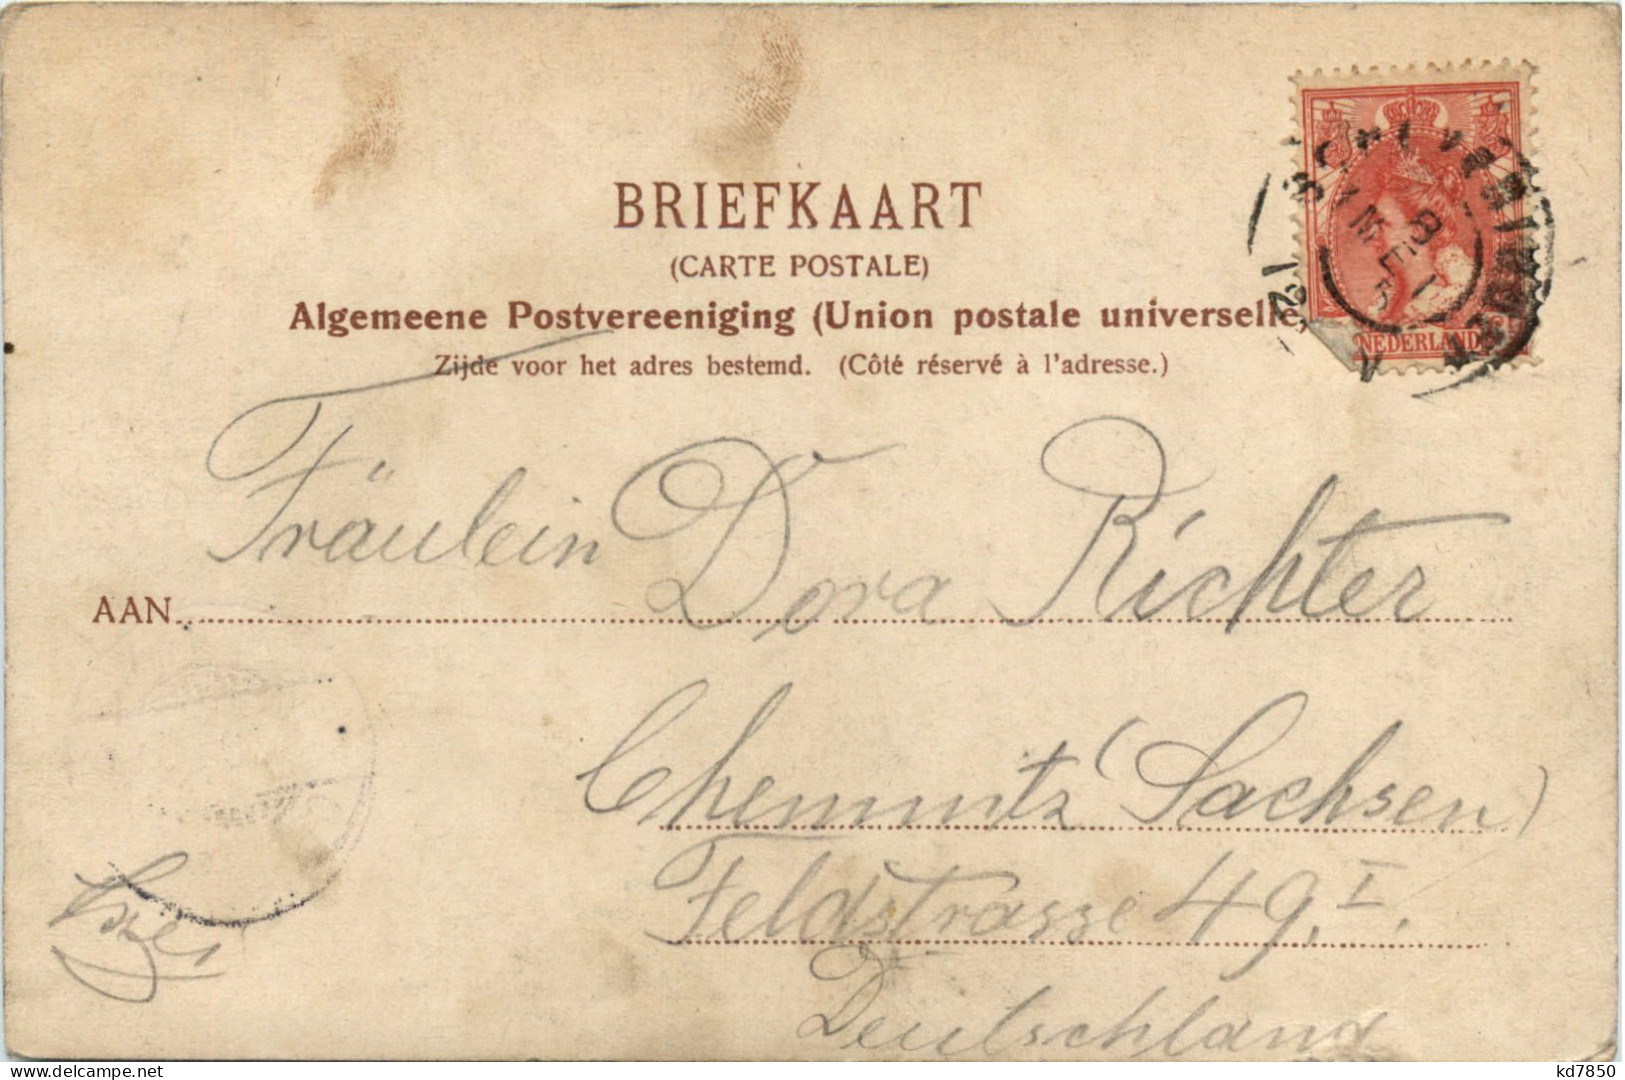 BRIEFKAART
(CARTE POSTALE)
Algemeene Postvereeniging (Union postale universelle
Zijde voor het adres bestemd. (Côté réservé à l'adresse.)
NEDERLAND
Fräulein Dora Richter
AAN
Chemnitz (Sachsen)
Feldstrasse 49, I.
Deutschland
kd7850